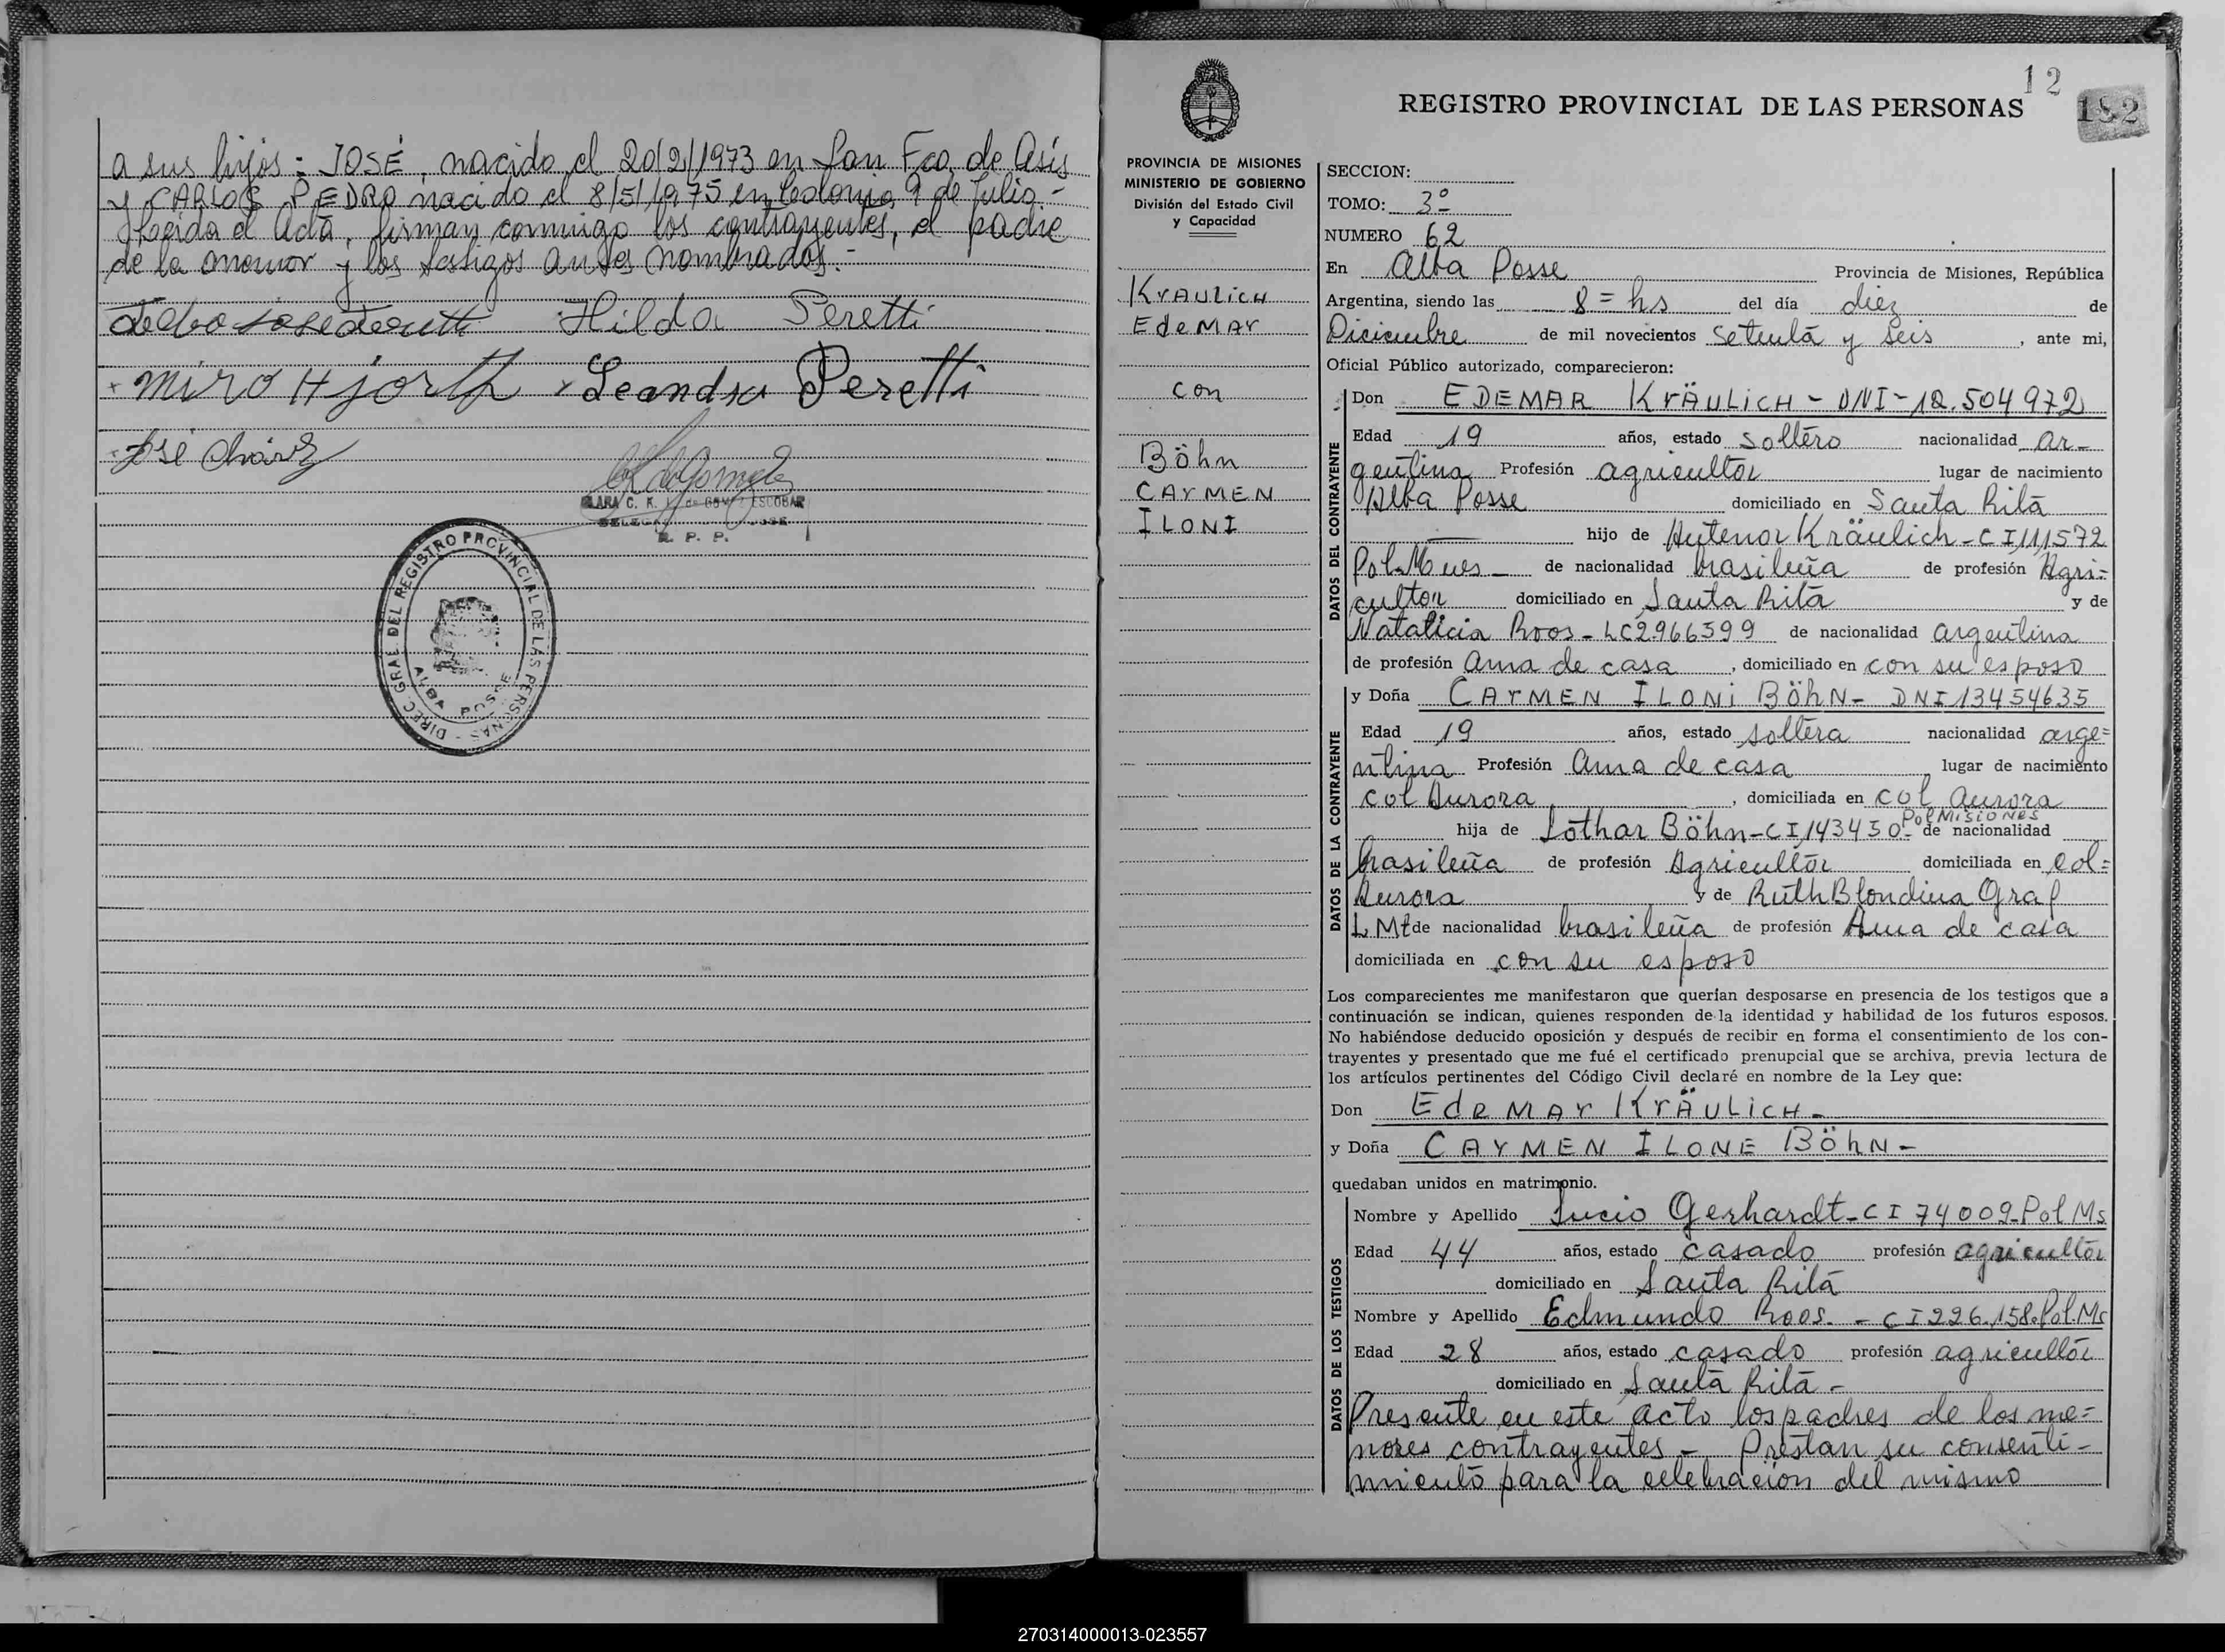 a sus hijos: JOSÉ, nacido el 20/2/1973 en San Fco. de Asís
y CARLOS PEDRO nacido el 8/5/1975 en Colonia 9 de Julio.-
el Acta, firman conmigo los contrayentes, el padre
de la menor y los testigos antes nombrados.-
Hilda Peretti
+ miro Hjorth x Leandro Peretti
José Chávez
CLARA C. K. de GOMEZ ESCOBAR
R. P. P.
DIREC. GRAL DEL REGISTRO PROVINCIAL DE LAS PERSONAS -
ALBA POSSE
12
182
REGISTRO PROVINCIAL DE LAS PERSONAS
PROVINCIA DE MISIONES
MINISTERIO DE GOBIERNO
División del Estado Civil
y Capacidad
KrAULicH
EdeMAr
con
Böhn
CArMEN
ILONI
SECCION:
TOMO: 3º
NUMERO 62
En Alba Posse Provincia de Misiones, República
Argentina, siendo las 8=hs del día diez de
Diciembre de mil novecientos setenta y seis, ante mi,
Oficial Público autorizado, comparecieron:
DATOS DEL CONTRAYENTE
Don EDEMAR KrÄULicH - DNI-12.504972
Edad 19 años, estado soltero nacionalidad ar-
gentina Profesión agricultor lugar de nacimiento
Alba Posse domiciliado en Santa Rita
hijo de Antenor Kräulich - CI 111572
Pol. Mnes - de nacionalidad brasileña de profesión Agri-
cultor domiciliado en Santa Rita y de
Natalicia Roos - LC2966599 de nacionalidad argentina
de profesión Ama de casa, domiciliado en con su esposo
DATOS DE LA CONTRAYENTE
y Doña CArMEN ILONi BöhN- DNI 13454635
Edad 19 años, estado soltera nacionalidad arge=
ntina Profesión Ama de casa lugar de nacimiento
col Aurora, domiciliada en col Aurora
hija de Lothar Böhn-CI 143450- Pol MISIONES de nacionalidad
brasileña de profesión Agricultor domiciliada en col=
Aurora y de Ruth Blondina Graf
de nacionalidad brasileña de profesión Ama de casa
domiciliada en con su esposo
Los comparecientes me manifestaron que querían desposarse en presencia de los testigos que a
continuación se indican, quienes responden de la identidad y habilidad de los futuros esposos.
No habiéndose deducido oposición y después de recibir en forma el consentimiento de los con-
trayentes y presentado que me fué el certificado prenupcial que se archiva, previa lectura de
los artículos pertinentes del Código Civil declaré en nombre de la Ley que:
Don EdeMAr KrÄULicH-
y Doña CArMEN ILONE BöhN-
quedaban unidos en matrimonio.
DATOS DE LOS TESTIGOS
Nombre y Apellido Lucio Gerhardt-CI 74009-Pol Ms
Edad 44 años, estado casado profesión agricultor
domiciliado en Santa Rita
Nombre y Apellido Edmundo Roos. - CI 226.158.Pol.Ms
Edad 28 años, estado casado profesión agricultor
domiciliado en Santa Rita-
Presente en este acto los padres de los me=
nores contrayentes - Prestan su consenti-
miento para la celebración del mismo
270314000013-023557